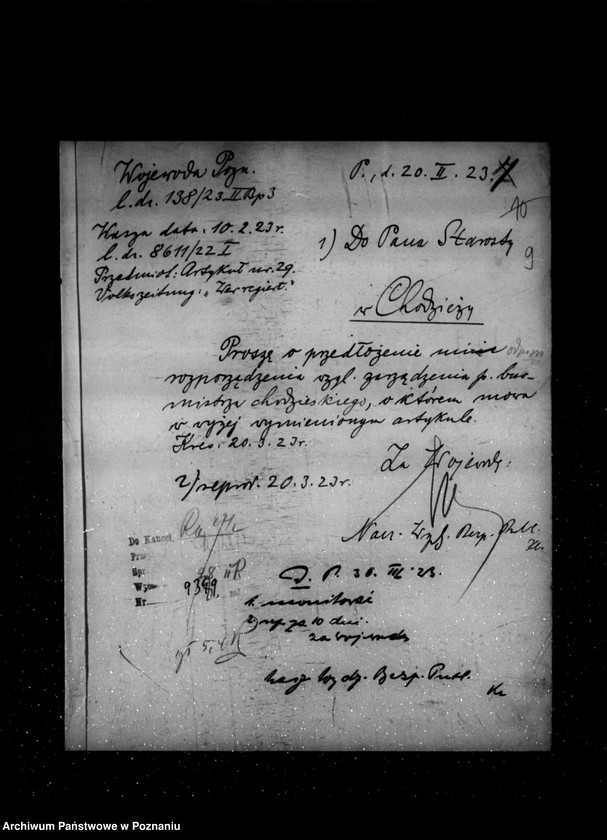 Wojewoda Pozn.
l.dz. 138/23 II Bp3
P., d. 20. II. 23.
10
9
Wasza data: 10.2.23r.
l. dz. 8611/22 I
Przedmiot: Artykuł nr. 29.
Volkszeitung: „
1) Do Pana Starosty
w Chodzieży
Proszę o przedłożenie mnie odpisu
rozporządzenia wzgl. zarządzenia p. bur-
mistrza chodzieskiego, o którem mowa
w wyżej wymienionym artykule.
Kres: 20.3.23r.
Za Wojewodę:
2) reprod. 20.3.23r.
Nacz. Wydz. Bezp. Publ.
Do Kancel.
Nr. 9389.
D. P. 30. III. 23.
1. monitować
2) rep za 10 dni.
za wojewodę
Nacz Wydz. Bezp. Publ.
Archiwum Państwowe w Poznaniu